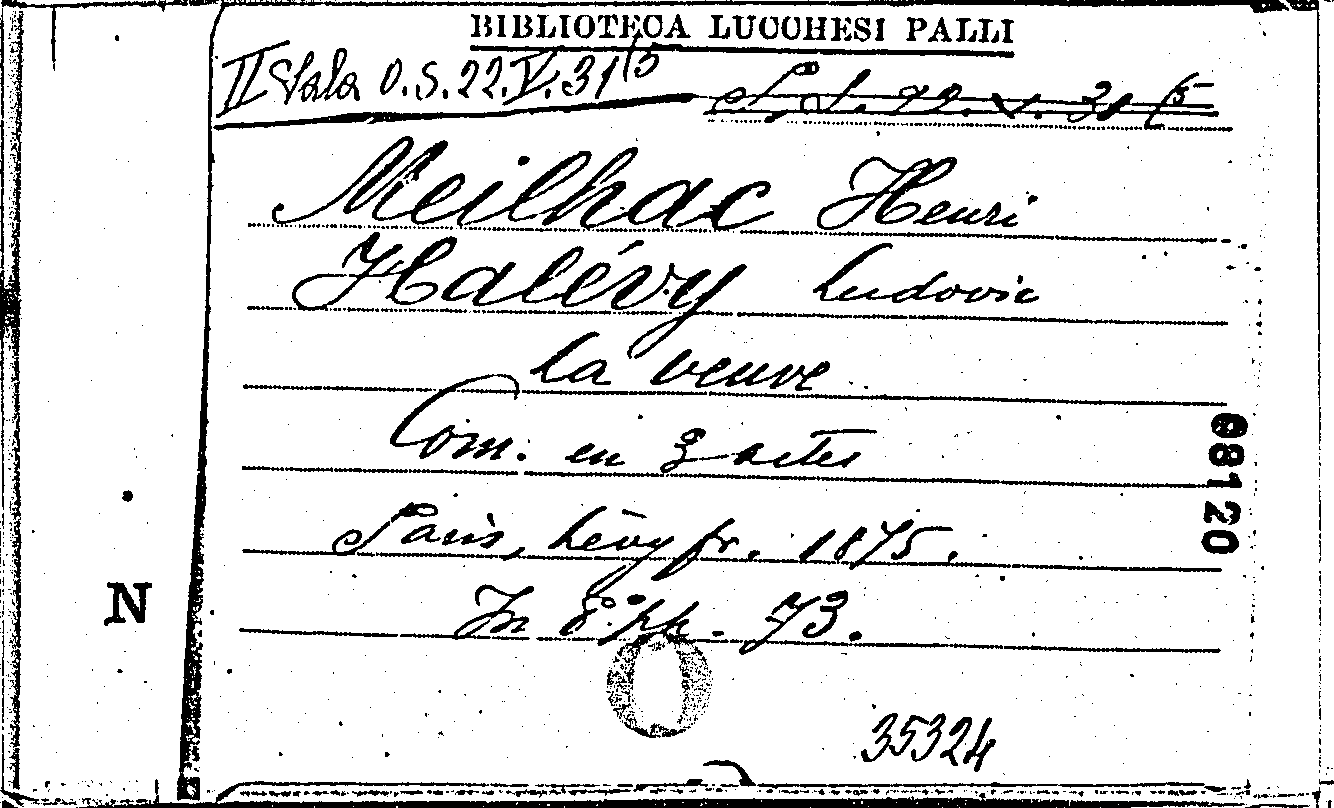 BIBLIOTECA LUCCHESI PALLI
II Sala O.S.22.V.31(5
Meilhac Henri
Halévy Ludovic
La veuve
Com. en 3 actes
Paris, Lévy fr. 1875.
In 8º pp. 73.
N
08120
35324